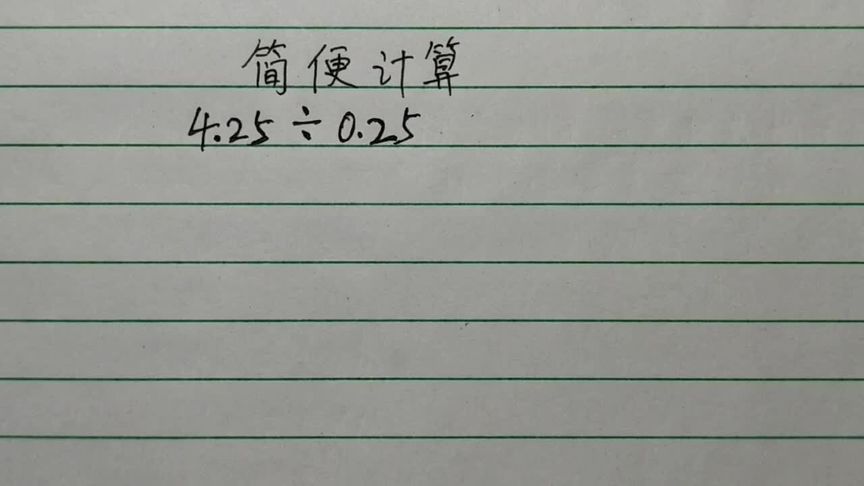 简便计算
4.25÷0.25